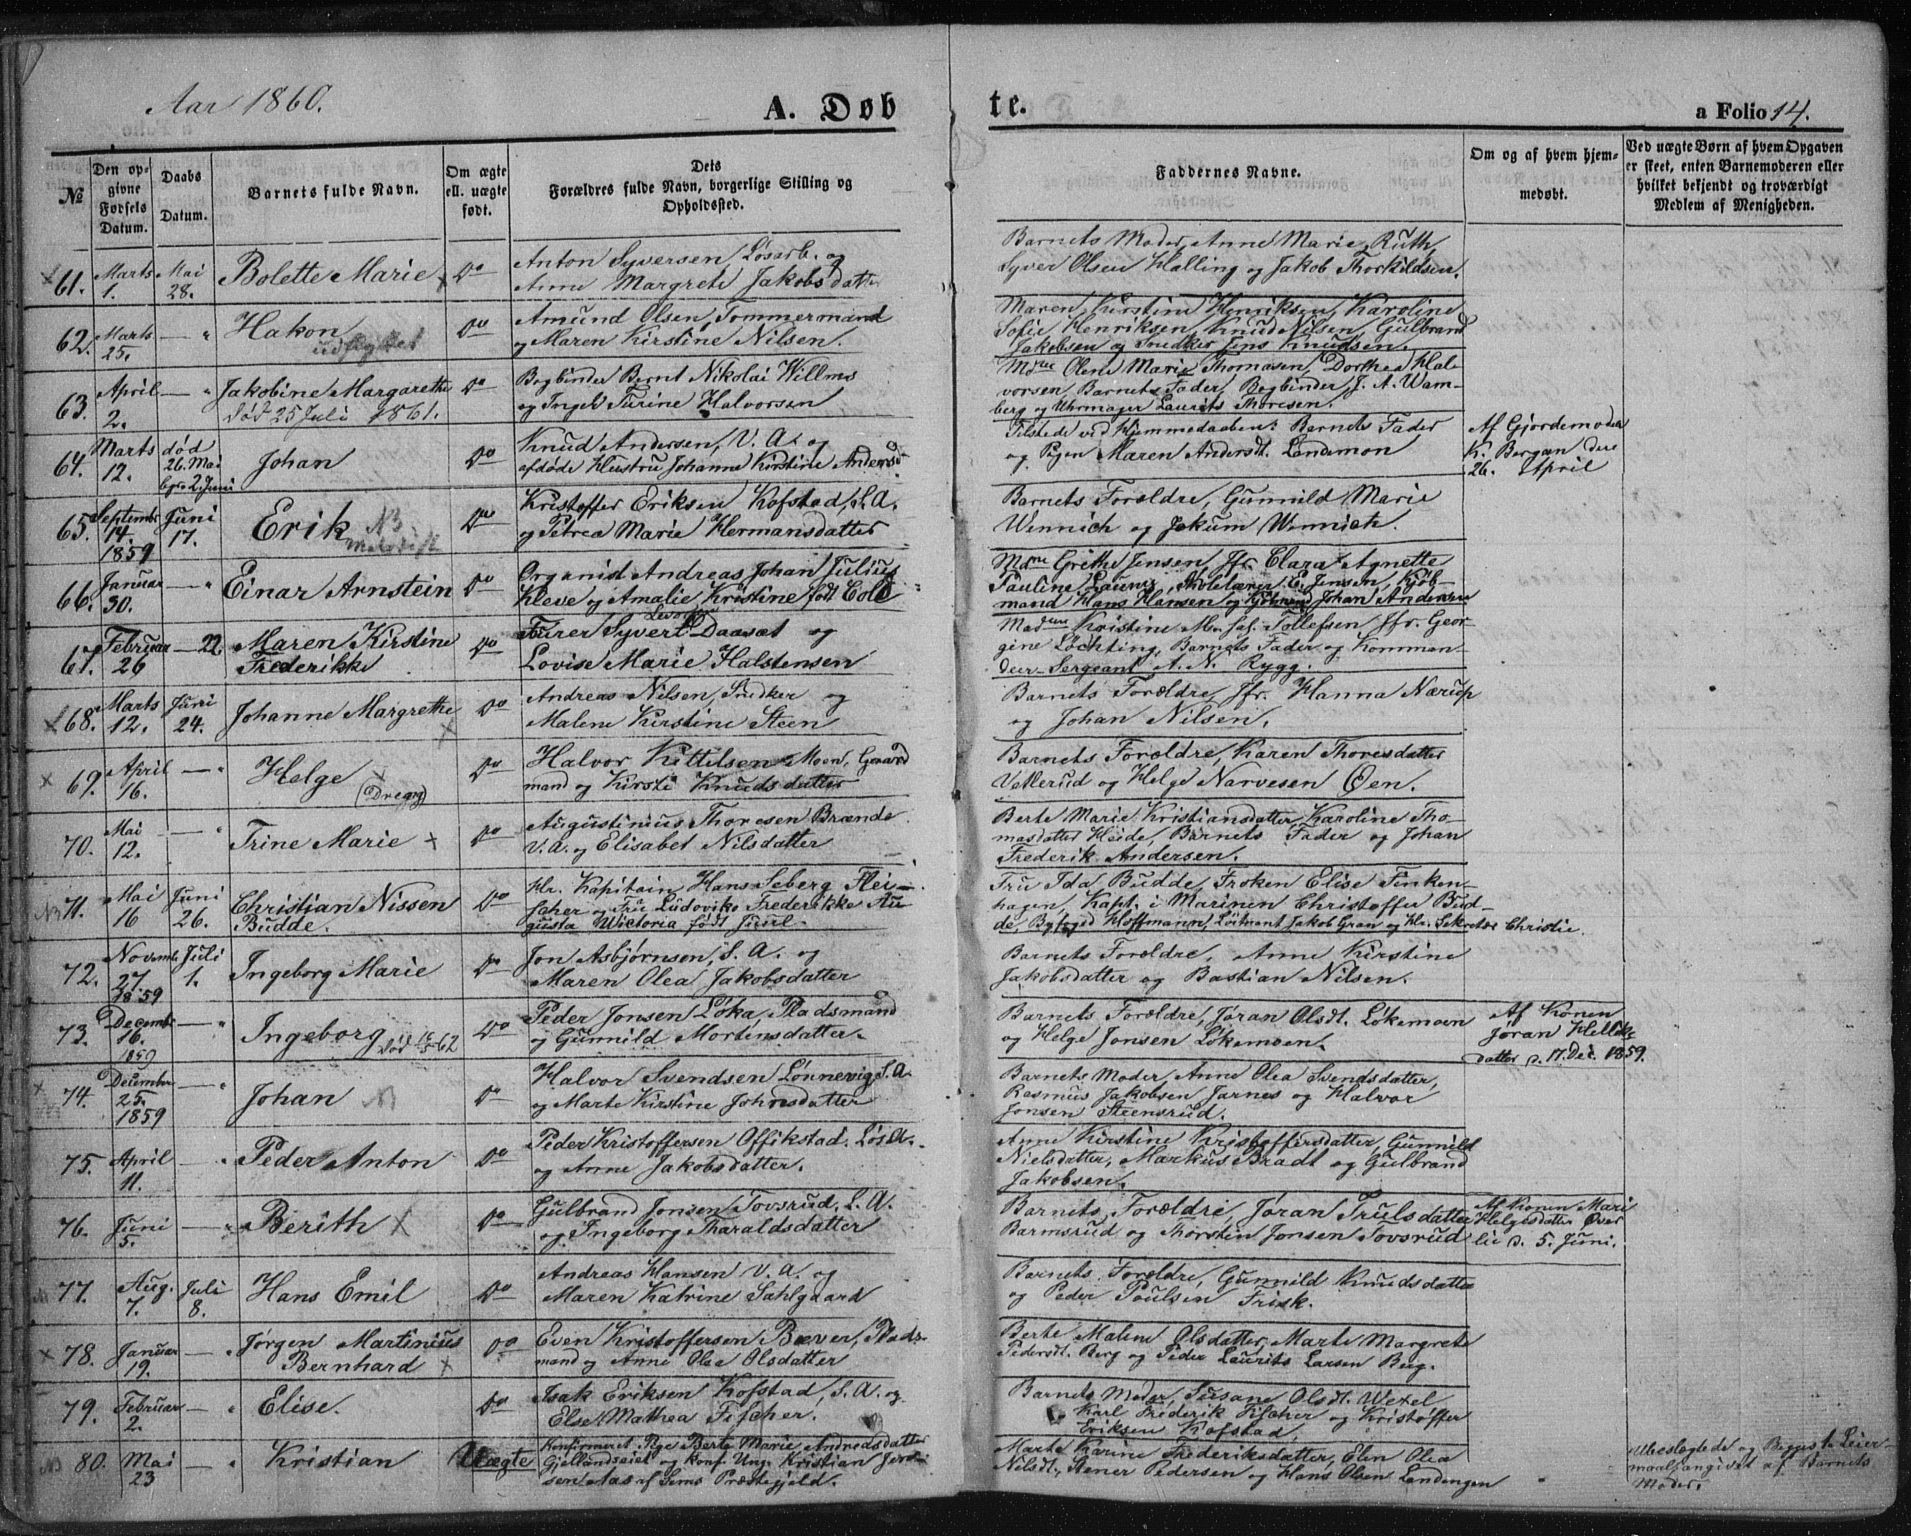 Aar 1860.
A. Døbte.
a Folio 14.
№
Den opgivne Fødsels Datum.
Daabs Datum.
Barnets fulde Navn.
Om ægte ell. uægte født.
Dets Forældres fulde Navn, borgerlige Stilling og Opholdssted.
Faddernes Navne.
Om og af hvem hjemmedøbt.
Ved uægte Børn af hvem Opgaven er skeet, enten Barnemoderen eller hvilket bekjendt og troværdigt Medlem af Menigheden.
61. Marts 1. Mai 28. Bolette Marie Do
Anton Syversen Løsarb. og
Anne Margrete Jakobsdatter
Barnets Moder, Anne Marie Ruth,
Syver Olsen Halling og Jakob Thorkildsen.
62. Marts 25. — " Hakon Do
udflyttet
Amund Olsen Tømmermand
og Maren Kirstine Nilsen.
Maren Kirstine Henriksen, Karoline
Sofie Henriksen, Knud Nilsen, Gulbrand
Jakobsen og Snedker Jens Knudsen.
63. April 2. — " Jakobine Margarethe Do
død 25 Juli 1861.
Bogbinder Bernt Nikolai Willms
og Ingeb. Turine Halvorsen
Mdme Olene Marie Thomasen, Dorthea Halvorsen
Barnets Fader, Bogbinder J. A. Wamberg
og Uhrmager Laurits Thoresen.
64. Marts 12. død 26. Mai bgr. 2. Juni Johan Do
Knud Andersen, V. A. og
afdøde Hustru Johanne Kirstine Anders
Tilstede ved Hjemmedaaben: Barnets Fader
og Pigen Maren Andersdt. Landemon
Af Gjordemoder
K. Bergan den
26. April
65. Septembr 14. 1859 Juni 17. Erik NB Do
Kristoffer Eriksen Kofstad, S. A.
og Petrea Marie Hermansdatter
Barnets Forældre, Gunnild Marie
Wennich og Jokum Wennich.
66. Januar 30. — " Einar Arnstein Do
Organist Andreas Johan Julius
Kleve og Amalie Kristine født Cold
Mdme Grethe Jensen, Jfr. Clara Agnette
Pauline Launiz, Skolelærer E. Jensen, Kjøbmand
Hans Hansen og Kjøbmand Johan Andersen
67. Februar 26 — 22. Maren Kirstine Frederikke Do
Furer Syvert Daasæt og
Lovise Marie Halstensen
Madme Kristine M. Tollefsen Jfr. Georgine
Løchting, Barnets Fader og Kommandeur-Sergeant
A. N. Rygg.
68. Marts 12. Juni 24. Johanne Margrethe Do
Andreas Nilsen, Snedker og
Malene Kirstine Steen
Barnets Forældre, Jfr. Hanna Nærup
og Johan Nilsen.
69. April 16. — " Helge (Dreng) Do
Halvor Kittelsen Moen, Gaardmand
og Kirsti Knudsdatter
Barnets Forældre, Karen Thoresdatter
Vetterud og Helge Narvesen Øen.
70. Mai 12. — " Trine Marie Do
Augustinius Thoresen Brænde
V. A. og Elisabet Nilsdatter
Berte Marie Kristiansdatter, Karoline Thomasdatter
Heide, Barnets Fader og Johan
Frederik Andersen.
71. Mai 16 Juni 26. Christian Nissen Budde. Do
Hr. Kapitain Hans Seberg Fleischer
og Fru Ludovike Frederikke Augusta
Wictoria født Juul
Fru Ida Budde, Frøken Elise Finkenhagen,
Kapt. i Marinen Christoffer Budde,
Byfoged Hoffmann, Løitnant Jakob Gran og Hr. Sekretær Christie.
72. Novembr 27. 1859 Juli 1. Ingeborg Marie Do
Jon Asbjørnsen, S. A. og
Maren Olea Jakobsdatter
Barnets Forældre, Anne Kirstine
Jakobsdatter og Bastian Nilsen.
73. Decembr 16. 1859 — " Ingeborg Do
Peder Jonsen Løka, Pladsmand
og Gunnild Mortensdatter.
Barnets Forældre, Jøran Olsdt. Løkemoen
og Helge Jonsen Løkemoen.
Af Konen
Jøran Helliks
datter d. 17. Dec. 1859.
74. December 25. 1859 — " Johan Do
Halvor Svendsen Lønnevig, S. A.
og Marte Kirstine Johnsdatter
Barnets Moder, Anne Olea Svendsdatter,
Rasmus Jakobsen Jarnes og Halvor
Jonsen Steensrud.
75. April 11. — " Peder Anton Do
Peder Kristoffersen Offikstad. Løs. A.
og Anne Jakobsdatter.
Anne Kirstine Kristoffersdatter, Gunnild
Nielsdatter, Markus Bradt og Gulbrand
Jakobsen.
76. Juni 5. — " Berith Do
Gulbrand Jonsen Tovsrud, L. A.
og Ingeborg Haraldsdatter
Barnets Forældre, Jøran Trulsdatter
Barmsrud og Thorstin Jonsen Tovsrud
Af Konen Mari
Helgesdatter Øver
lie d. 5. Juni.
77. Aug. 7. Juli 8. Hans Emil Do
Andreas Hansen V. A. og
Maren Katrine Sahlgaard
Barnets Forældre, Gunnild Knudsdatter
og Peder Poulsen Frisk.
78. Januar 19. — " Jørgen Martinius Bernhard Do
Even Kristoffersen Bæver, Pladsmand
og Anne Olea Olsdatter
Berte Malene Olsdatter, Marte Margrete
Pedersdt. Berg og Peder Laurits Larsen Berg.
79. Februar 2. — " Elise. Do
Isak Eriksen Kofstad, S. A. og
Else Mathea Fischer.
Barnets Moder, Susane Olsdt. Wexel
Karl Frederik Fischer og Kristoffer
Eriksen Kofstad.
80. Mai 23 — " Kristian Uægte
Konfirmeret Pige Berte Marie Andreasdatter
Gjellandseiet og konf. Ung. Kristian
Aas af Sems Præstegjeld.
Marte Karine Frederiksdatter, Elen Olea
Nilsdt., Stener Pedersen og Hans Olsen Landengen
Ubeslægtede og Begges 1ste Leiermaal,
angivet af Barnets
Moder.